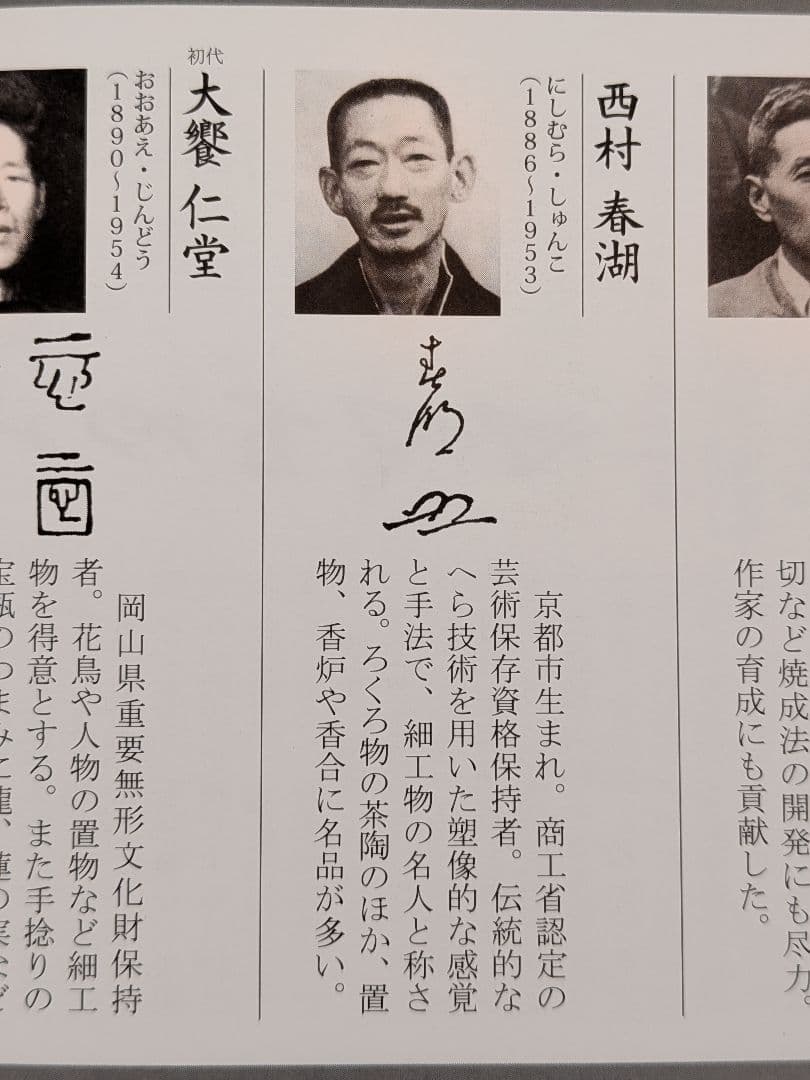 切など焼成法の開発にも尽力。
作家の育成にも貢献した。
西村 春湖
にしむら・しゅんこ
(1886〜1953)
京都市生まれ。商工省認定の
芸術保存資格保持者。伝統的な
へら技術を用いた塑像的な感覚
と手法で、細工物の名人と称さ
れる。ろくろ物の茶陶のほか、置
物、香炉や香合に名品が多い。
初代
大饗 仁堂
おおあえ・じんどう
(1890〜1954)
岡山県重要無形文化財保持
者。花鳥や人物の置物など細工
物を得意とする。また手捻りの